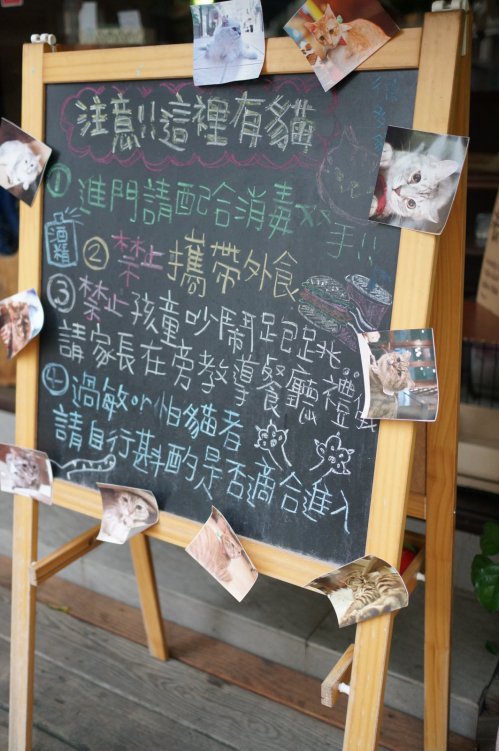 注意!!這裡有貓
①進門請配合消毒双
手!!
酒精
②禁止攜帶外食
③禁止孩童吵鬧跑跳
請家長在旁教導餐廳禮儀
④過敏or怕貓者
請自行斟酌是否適合進入